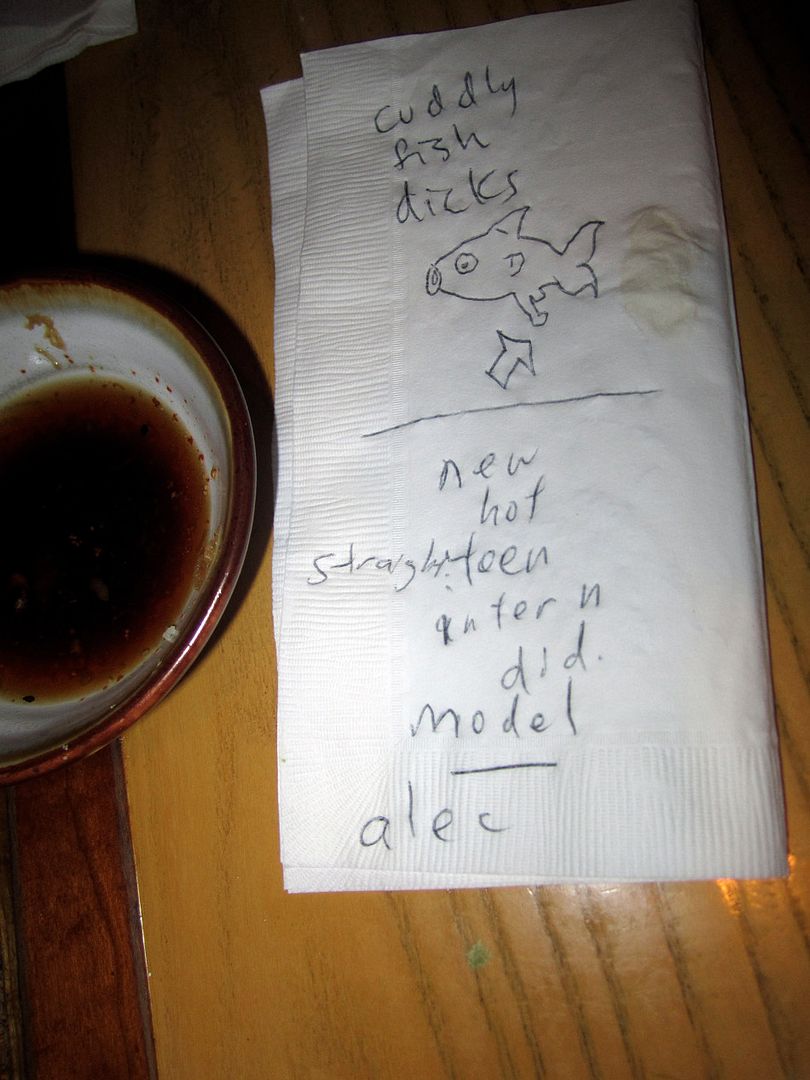 cuddly
fish
dicks
new
hot
straight teen
intern
did.
model
alec